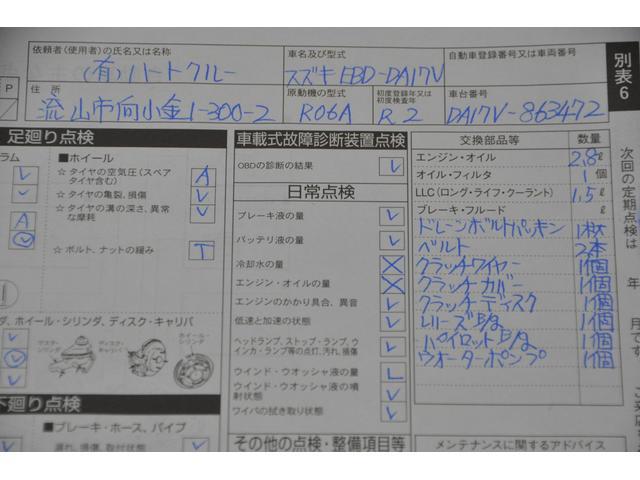 依頼者(使用者)の氏名又は名称
(有)ハートクルー
車名及び型式
スズキ EBD-DA17V
自動車登録番号又は車両番号
別表6
P
住所
流山市向小金1-300-2
原動機の型式
R06A
初度登録年又は
初度検査年
R2
車台番号
DA17V-863472
次回の定期点検は 年 月です
足廻り点検
ラム
■ホイール
☆タイヤの空気圧(スペア
タイヤ含む) A
☆タイヤの亀裂、損傷 レ
☆タイヤの溝の深さ、異常
な摩耗 レ
A
☆ボルト、ナットの緩み T
ダ、ホイール・シリンダ、ディスク・キャリパ
マスター・
シリンダ
ディスク・
キャリパ
ホイール・
シリンダ
下廻り点検
■ブレーキ・ホース、パイプ
漏れ、損傷、取付状態
車載式故障診断装置点検
OBDの診断の結果 レ
日常点検
ブレーキ液の量 レ
バッテリ液の量 レ
冷却水の量 ×
エンジン・オイルの量 ×
エンジンのかかり具合、異音 レ
低速と加速の状態 レ
ヘッドランプ、ストップ・ランプ、ウ
インカ・ランプ等の点灯、汚れ、損傷 レ
ウインド・ウオッシャ液の量 L
ウインド・ウオッシャ液の噴
射状態 レ
ワイパの拭き取り状態 レ
その他の点検・整備項目等
交換部品等 数量
エンジン・オイル 2.8ℓ
オイル・フィルタ 1個
LLC(ロング・ライフ・クーラント) 1.5ℓ
ブレーキ・フルード ℓ
ドレーンボルトパッキン 1枚
ベルト 2本
クラッチワイヤー 1個
クラッチカバー 1個
クラッチディスク 1個
レリーズB/g 1個
パイロットB/g 1個
ウオーターポンプ 1個
メンテナンスに関するアドバイス